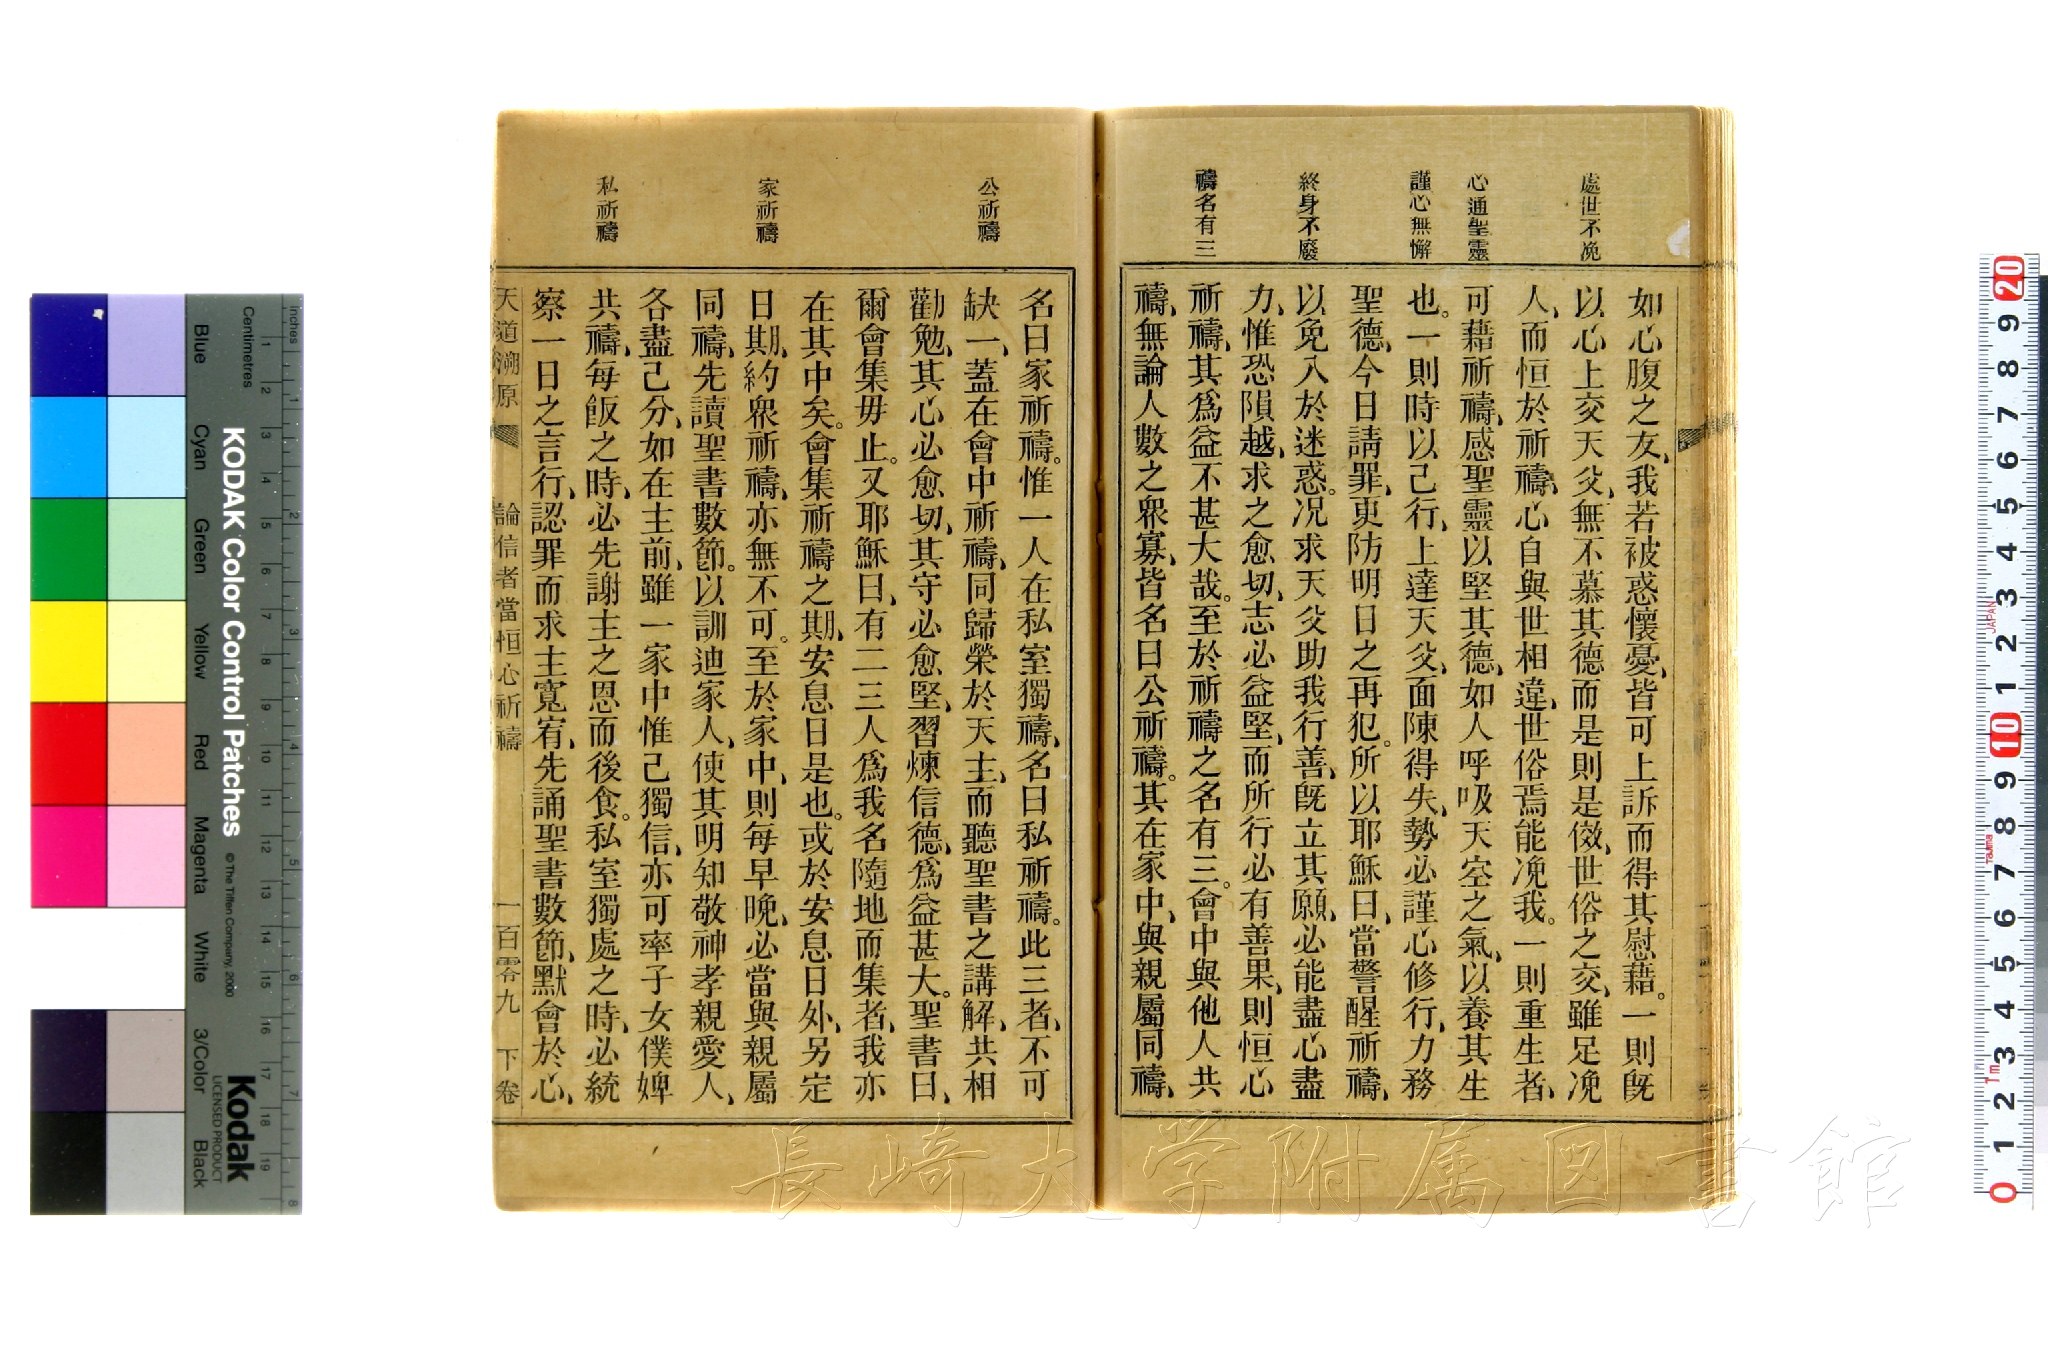 處世不浼
心通聖靈
謹心無懈
終身不廢
禱名有三
如心腹之友、我若被惑懷憂、皆可上訴而得其慰藉。一則旣
以心上交天父、無不慕其德而是則是傚、世俗之交、雖足浼
人、而恒於祈禱、心自與世相違、世俗焉能浼我。一則重生者、
可藉祈禱、感聖靈以堅其德、如人呼吸天空之氣、以養其生
也。一則時以己行、上達天父、面陳得失、勢必謹心修行、力務
聖德、今日請罪、更防明日之再犯。所以耶穌曰、當警醒祈禱、
以免入於迷惑。況求天父助我行善、旣立其願、必能盡心盡
力、惟恐隕越、求之愈切、志必益堅、而所行必有善果、則恒心
祈禱、其爲益不甚大哉。至於祈禱之名有三。會中與他人共
禱、無論人數之衆寡、皆名曰公祈禱。其在家中、與親屬同禱、
公祈禱
家祈禱
私祈禱
名曰家祈禱。惟一人在私室獨禱、名曰私祈禱。此三者、不可
缺一、蓋在會中祈禱、同歸榮於天主、而聽聖書之講解、共相
勸勉、其心必愈切、其守必愈堅、習煉信德、爲益甚大。聖書曰、
爾會集毋止。又耶穌曰、有二三人爲我名隨地而集者、我亦
在其中矣。會集祈禱之期、安息日是也。或於安息日外、另定
日期、約衆祈禱、亦無不可。至於家中、則每早晚、必當與親屬
同禱、先讀聖書數節。以訓迪家人、使其明知敬神孝親愛人、
各盡己分、如在主前、雖一家中惟己獨信、亦可率子女僕婢
共禱、每飯之時、必先謝主之恩而後食。私室獨處之時、必統
察一日之言行、認罪而求主寬宥、先誦聖書數節、默會於心、
天道溯原 論信者當恒心祈禱 一百零九 下卷
長崎大学附属図書館
KODAK Color Control Patches
© The Tiffen Company, 2000
Kodak
LICENSED PRODUCT
Inches
Centimetres
Blue
Cyan
Green
Yellow
Red
Magenta
White
3/Color
Black
JAPAN